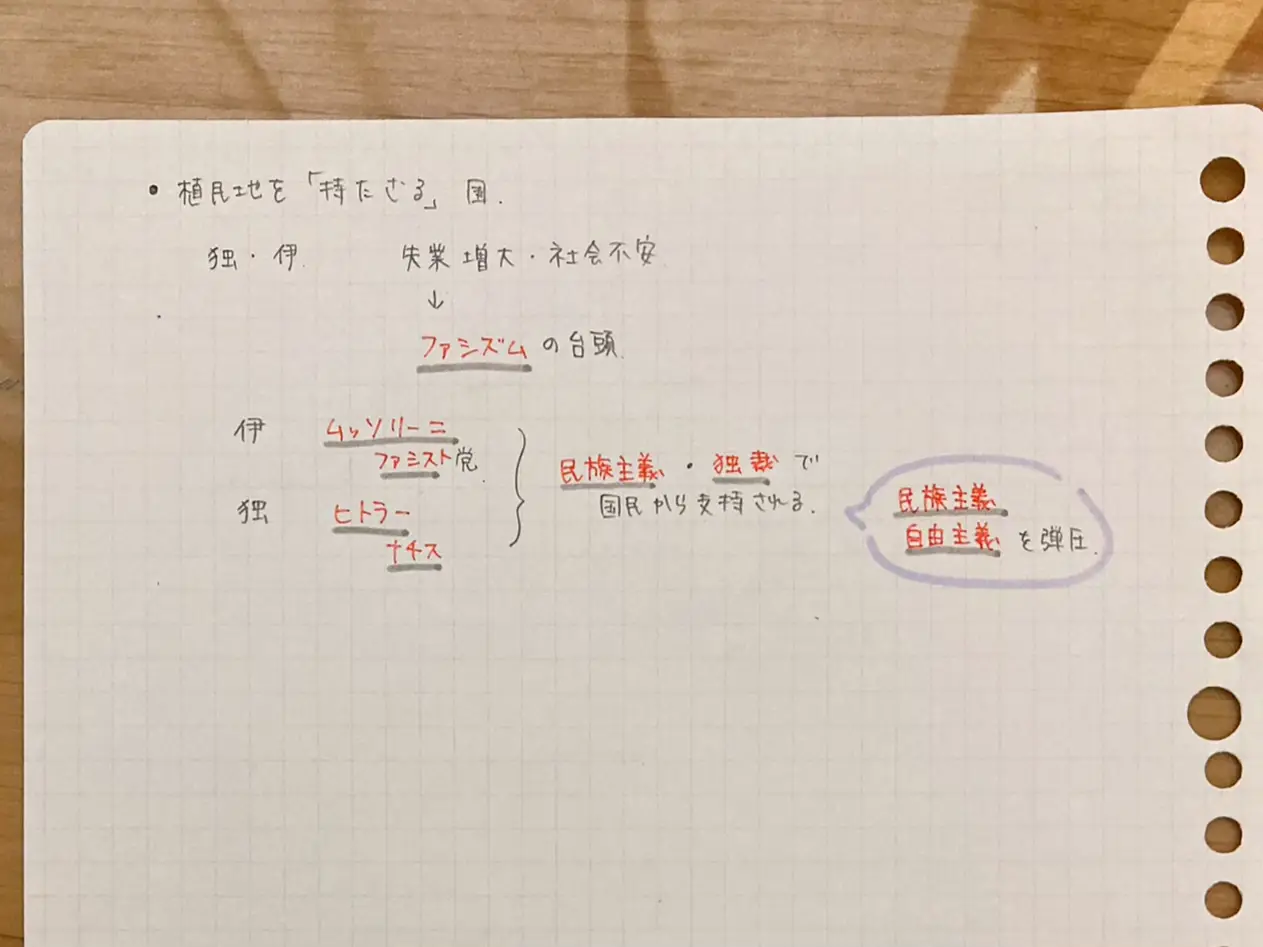 • 植民地を「持たざる」国.
独・伊. 失業増大・社会不安
↓
ファシズムの台頭.
伊 ムッソリーニ
ファシスト党.
独 ヒトラー
ナチス
民族主義・独裁で
国民から支持される.
民族主義
自由主義を弾圧.